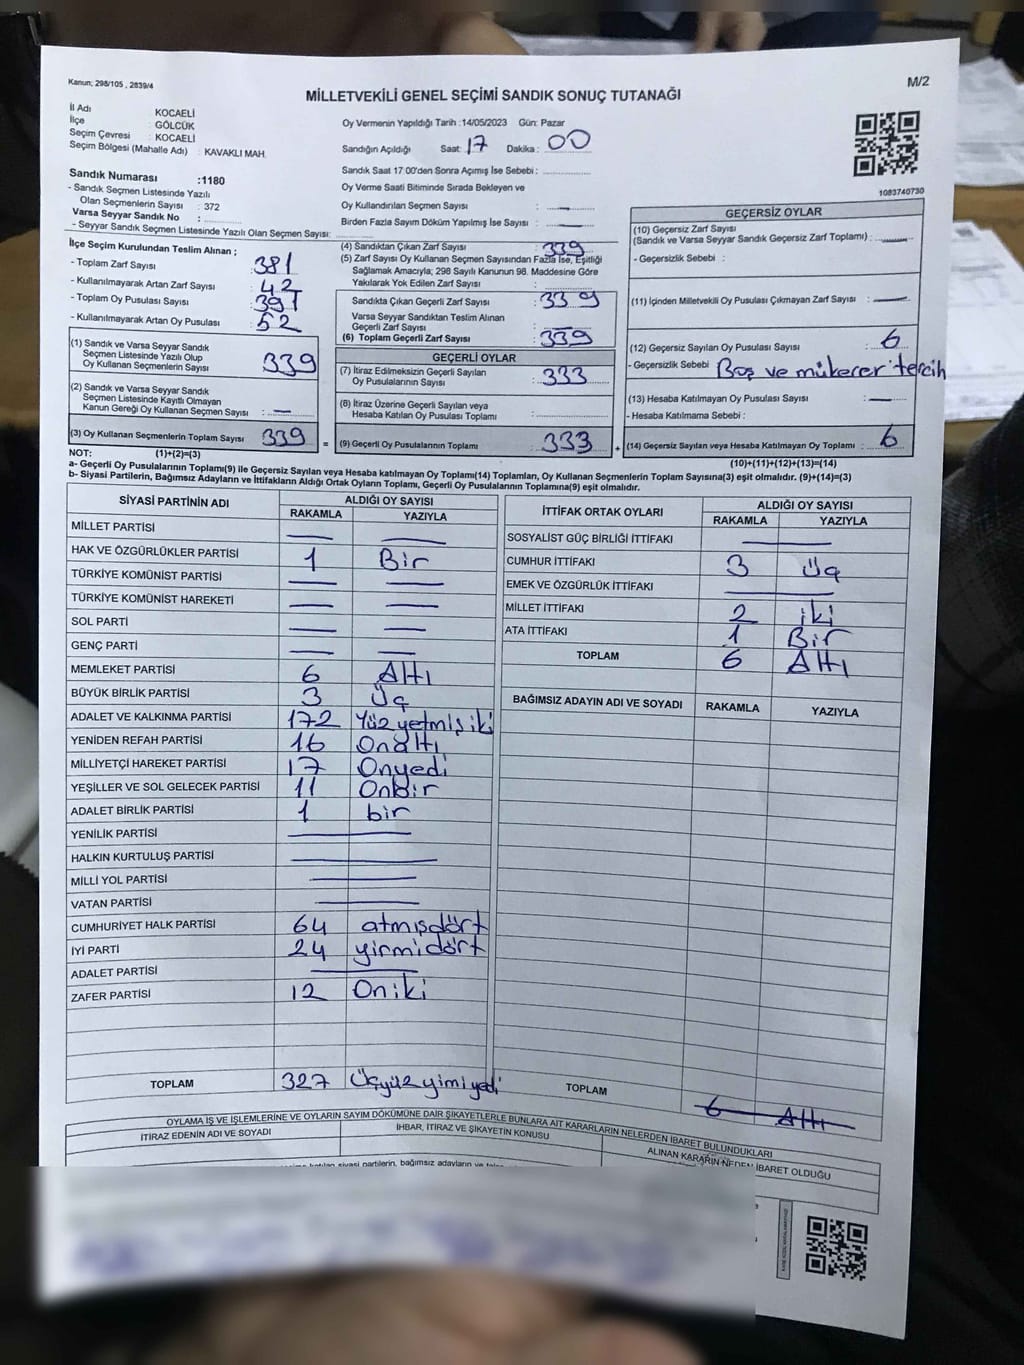 Kanun; 298/105 , 2839/4
M/2
MİLLETVEKİLİ GENEL SEÇİMİ SANDIK SONUÇ TUTANAĞI
İl Adı : KOCAELİ
İlçe : GÖLCÜK
Seçim Çevresi : KOCAELİ
Seçim Bölgesi (Mahalle Adı) : KAVAKLI MAH.
Sandık Numarası :1180
- Sandık Seçmen Listesinde Yazılı
Olan Seçmenlerin Sayısı : 372
Varsa Seyyar Sandık No :
- Seyyar Sandık Seçmen Listesinde Yazılı Olan Seçmen Sayısı:
Oy Vermenin Yapıldığı Tarih :14/05/2023 Gün: Pazar
Sandığın Açıldığı Saat: 17 Dakika : 00
Sandık Saat 17:00'den Sonra Açımış İse Sebebi :
Oy Verme Saati Bitiminde Sırada Bekleyen ve
Oy Kullandırılan Seçmen Sayısı : —
Birden Fazla Sayım Döküm Yapılmış İse Sayısı : —
1083740730
İlçe Seçim Kurulundan Teslim Alınan ;
- Toplam Zarf Sayısı : 381
- Kullanılmayarak Artan Zarf Sayısı : 42
- Toplam Oy Pusulası Sayısı : 391
- Kullanılmayarak Artan Oy Pusulası : 52
(1) Sandık ve Varsa Seyyar Sandık
Seçmen Listesinde Yazılı Olup
Oy Kullanan Seçmenlerin Sayısı : 339
(2) Sandık ve Varsa Seyyar Sandık
Seçmen Listesinde Kayıtlı Olmayan
Kanun Gereği Oy Kullanan Seçmen Sayısı : —
(3) Oy Kullanan Seçmenlerin Toplam Sayısı : 339
(4) Sandıktan Çıkan Zarf Sayısı : 339
(5) Zarf Sayısı Oy Kullanan Seçmen Sayısından Fazla İse, Eşitliği
Sağlamak Amacıyla; 298 Sayılı Kanunun 98. Maddesine Göre
Yakılarak Yok Edilen Zarf Sayısı :
Sandıkta Çıkan Geçerli Zarf Sayısı : 339
Varsa Seyyar Sandıktan Teslim Alınan
Geçerli Zarf Sayısı : —
(6) Toplam Geçerli Zarf Sayısı : 339
GEÇERLİ OYLAR
(7) İtiraz Edilmeksizin Geçerli Sayılan
Oy Pusulalarının Sayısı : 333
(8) İtiraz Üzerine Geçerli Sayılan veya
Hesaba Katılan Oy Pusulası Toplamı :
= (9) Geçerli Oy Pusulalarının Toplamı : 333
GEÇERSİZ OYLAR
(10) Geçersiz Zarf Sayısı
(Sandık ve Varsa Seyyar Sandık Geçersiz Zarf Toplamı) : —
- Geçersizlik Sebebi :
(11) İçinden Milletvekili Oy Pusulası Çıkmayan Zarf Sayısı : —
(12) Geçersiz Sayılan Oy Pusulası Sayısı : 6
- Geçersizlik Sebebi : Boş ve mükerer tercih
(13) Hesaba Katılmayan Oy Pusulası Sayısı : —
- Hesaba Katılmama Sebebi :
+ (14) Geçersiz Sayılan veya Hesaba Katılmayan Oy Toplamı : 6
NOT: (1)+(2)=(3) (10)+(11)+(12)+(13)=(14)
a- Geçerli Oy Pusulalarının Toplamı(9) ile Geçersiz Sayılan veya Hesaba katılmayan Oy Toplamı(14) Toplamları, Oy Kullanan Seçmenlerin Toplam Sayısına(3) eşit olmalıdır. (9)+(14)=(3)
b- Siyasi Partilerin, Bağımsız Adayların ve İttifakların Aldığı Ortak Oyların Toplamı, Geçerli Oy Pusulalarının Toplamına(9) eşit olmalıdır.
SİYASİ PARTİNİN ADI ALDIĞI OY SAYISI
RAKAMLA YAZIYLA
MİLLET PARTİSİ — —
HAK VE ÖZGÜRLÜKLER PARTİSİ 1 Bir
TÜRKİYE KOMÜNİST PARTİSİ — —
TÜRKİYE KOMÜNİST HAREKETİ — —
SOL PARTİ — —
GENÇ PARTİ — —
MEMLEKET PARTİSİ 6 Altı
BÜYÜK BİRLİK PARTİSİ 3 Üç
ADALET VE KALKINMA PARTİSİ 172 Yüzyetmişiki
YENİDEN REFAH PARTİSİ 16 Onaltı
MİLLİYETÇİ HAREKET PARTİSİ 17 Onyedi
YEŞİLLER VE SOL GELECEK PARTİSİ 11 Onbir
ADALET BİRLİK PARTİSİ 1 bir
YENİLİK PARTİSİ —
HALKIN KURTULUŞ PARTİSİ —
MİLLİ YOL PARTİSİ —
VATAN PARTİSİ —
CUMHURİYET HALK PARTİSİ 64 atmışdört
İYİ PARTİ 24 yirmidört
ADALET PARTİSİ —
ZAFER PARTİSİ 12 Oniki
TOPLAM 327 Üçyüzyimiyedi
İTTİFAK ORTAK OYLARI ALDIĞI OY SAYISI
RAKAMLA YAZIYLA
SOSYALİST GÜÇ BİRLİĞİ İTTİFAKI —
CUMHUR İTTİFAKI 3 Üç
EMEK VE ÖZGÜRLÜK İTTİFAKI —
MİLLET İTTİFAKI 2 iki
ATA İTTİFAKI 1 Bir
TOPLAM 6 Altı
BAĞIMSIZ ADAYIN ADI VE SOYADI RAKAMLA YAZIYLA
TOPLAM 6 Altı
OYLAMA İŞ VE İŞLEMLERİNE VE OYLARIN SAYIM DÖKÜMÜNE DAİR ŞİKAYETLERLE BUNLARA AİT KARARLARIN NELERDEN İBARET BULUNDUKLARI
İTİRAZ EDENİN ADI VE SOYADI
İHBAR, İTİRAZ VE ŞİKAYETİN KONUSU
ALINAN KARARIN NEDEN İBARET OLDUĞU
siyasi partilerin, bağımsız adayların ve